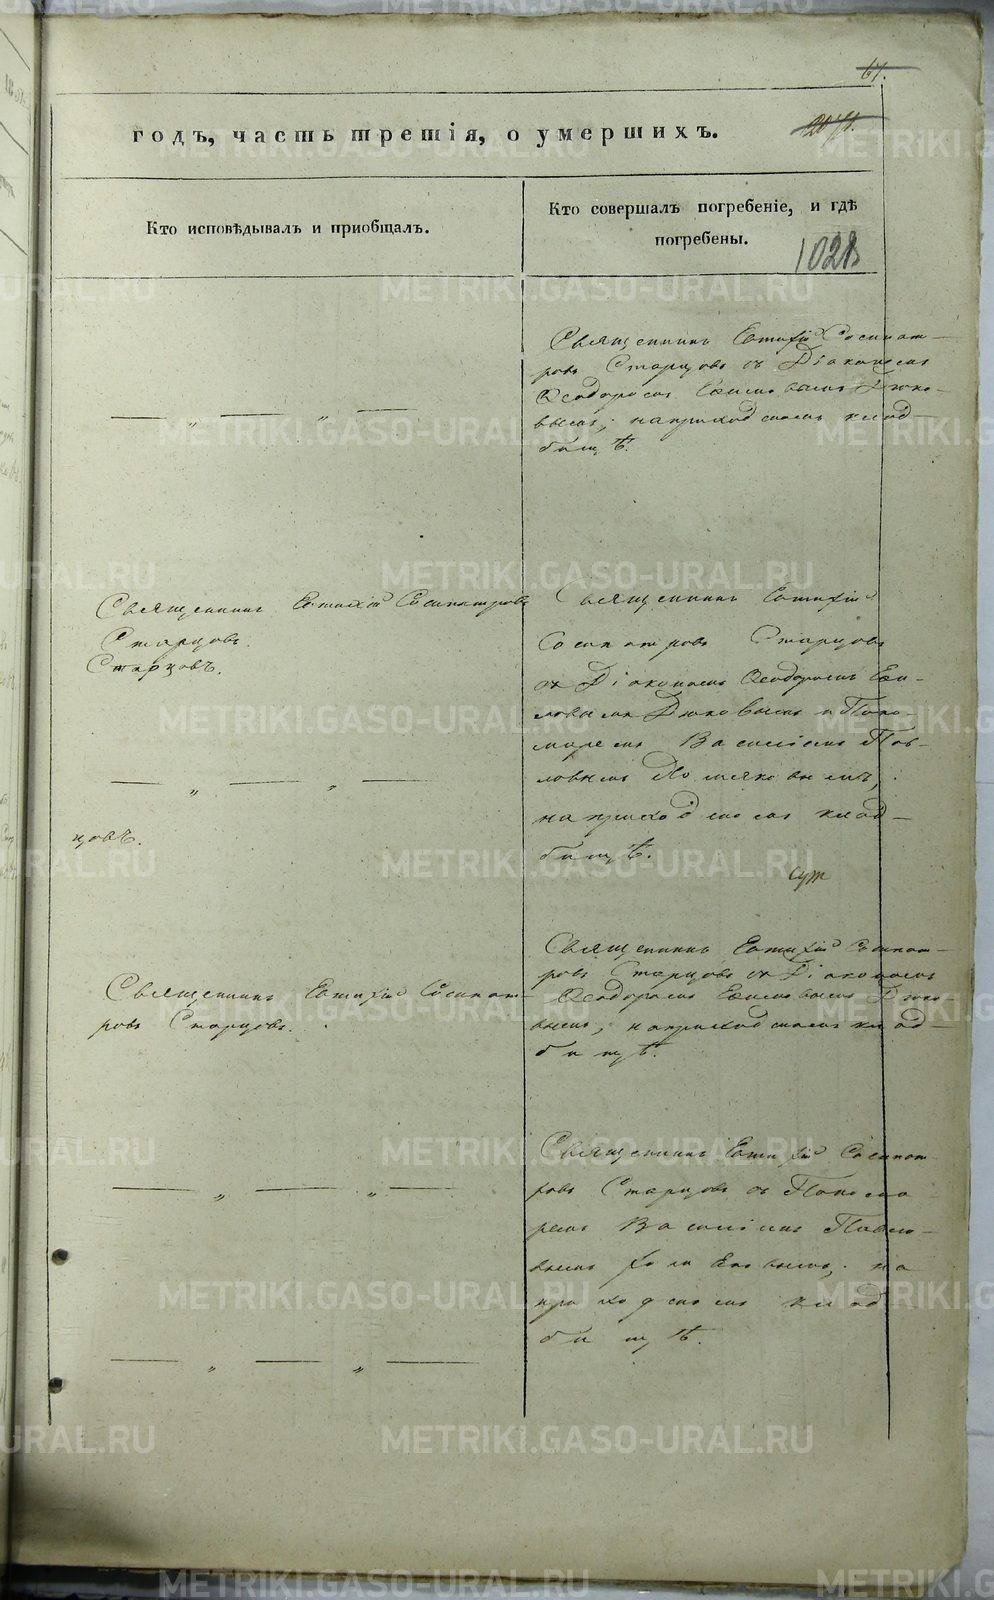 67.
годъ, часть третія, о умершихъ.
Кто исповѣдывалъ и пріобщалъ.
Кто совершалъ погребеніе, и гдѣ
погребены.
1028
Священникъ Евтихій Сосипат-
ровъ Старцовъ съ Діакономъ
Ѳеодоромъ
вымъ, на приходскомъ клад-
бищѣ.
Священникъ Евтихій Сосипатровъ
Старцовъ.
Старцовъ.
цовъ.
Священникъ Евтихій
Сосипатровъ Старцовъ
съ Діакономъ Ѳеодоромъ
и Поно-
маремъ Василіемъ Пав-
ловымъ
на приходскомъ клад-
бищѣ.
Священникъ Евтихій Сосипат-
ровъ Старцовъ.
Священникъ Евтихій Сосипат-
ровъ Старцовъ съ Діакономъ
Ѳеодоромъ
вымъ, на приходскомъ клад-
бищѣ.
Священникъ Евтихій Сосипат-
ровъ Старцовъ съ Понома-
ремъ Василіемъ Павло-
вымъ на
приходскомъ клад
бищѣ.
METRIKI.GASO-URAL.RU